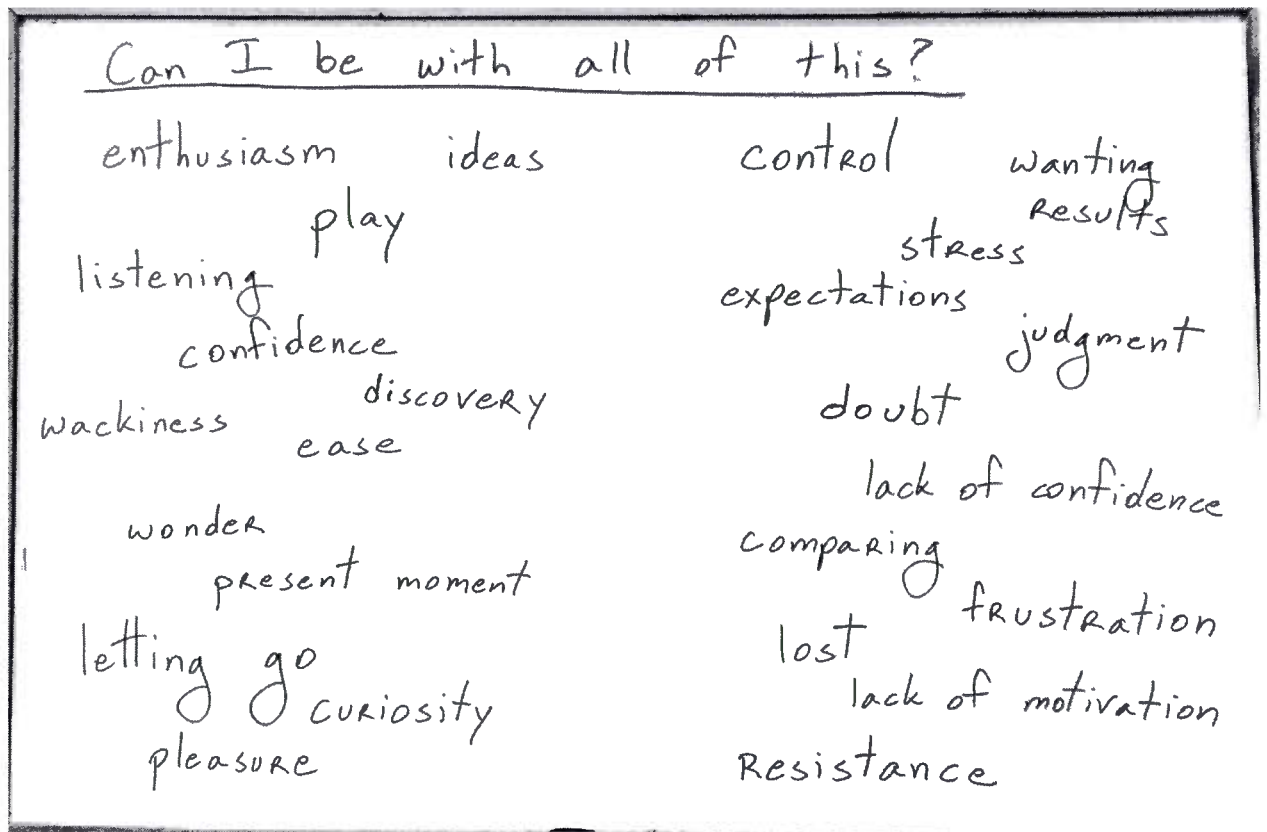 Can I be with all of this?
enthusiasm ideas
play
listening
confidence
discovery
wackiness
ease
wonder
present moment
letting go
curiosity
pleasure
control wanting
results
stress
expectations
judgment
doubt
lack of confidence
comparing
frustration
lost
lack of motivation
Resistance